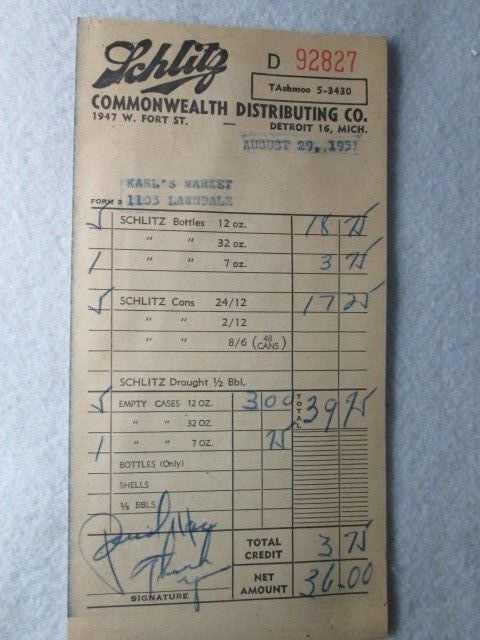 Schlitz D 92827
TAshmoo 5-3430
COMMONWEALTH DISTRIBUTING CO.
1947 W. FORT ST. — DETROIT 16, MICH.
AUGUST 29., 1951
KARL'S MARKET
FORM 3 1103 LAWNDALE
5 SCHLITZ Bottles 12 oz. 18 75
" " 32 oz.
1 " " 7 oz. 3 75
5 SCHLITZ Cans 24/12 17 25
" " 2/12
" " 8/6 (48 CANS)
SCHLITZ Draught ½ Bbl.
5 EMPTY CASES 12 OZ. 3 00 TOTAL 39 75
" " 32 OZ.
1 " " 7 OZ. 75
BOTTLES (Only)
SHELLS
½ BBLS.
TOTAL CREDIT 3 75
Thank
NET AMOUNT 36.00
SIGNATURE